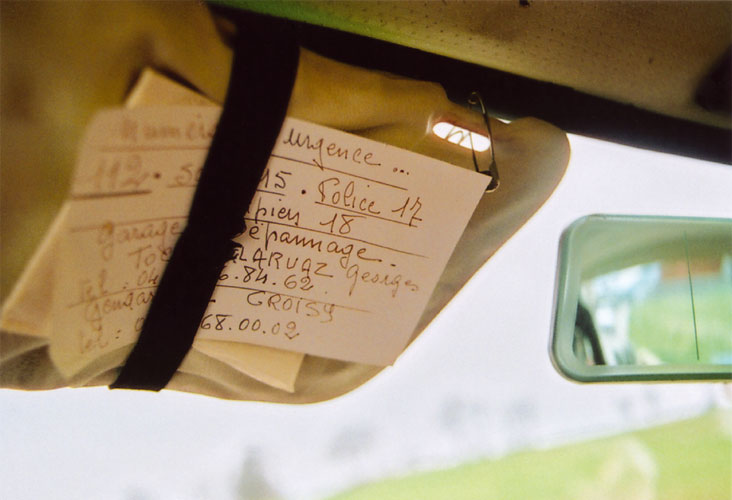 Numéro urgence ...
112 . S 15 . Police 17
pier 18
Garage épannage .
To ALARVAZ Georges
Tel : 04 6.84.62
GROISY
Tel : 0 68.00.02